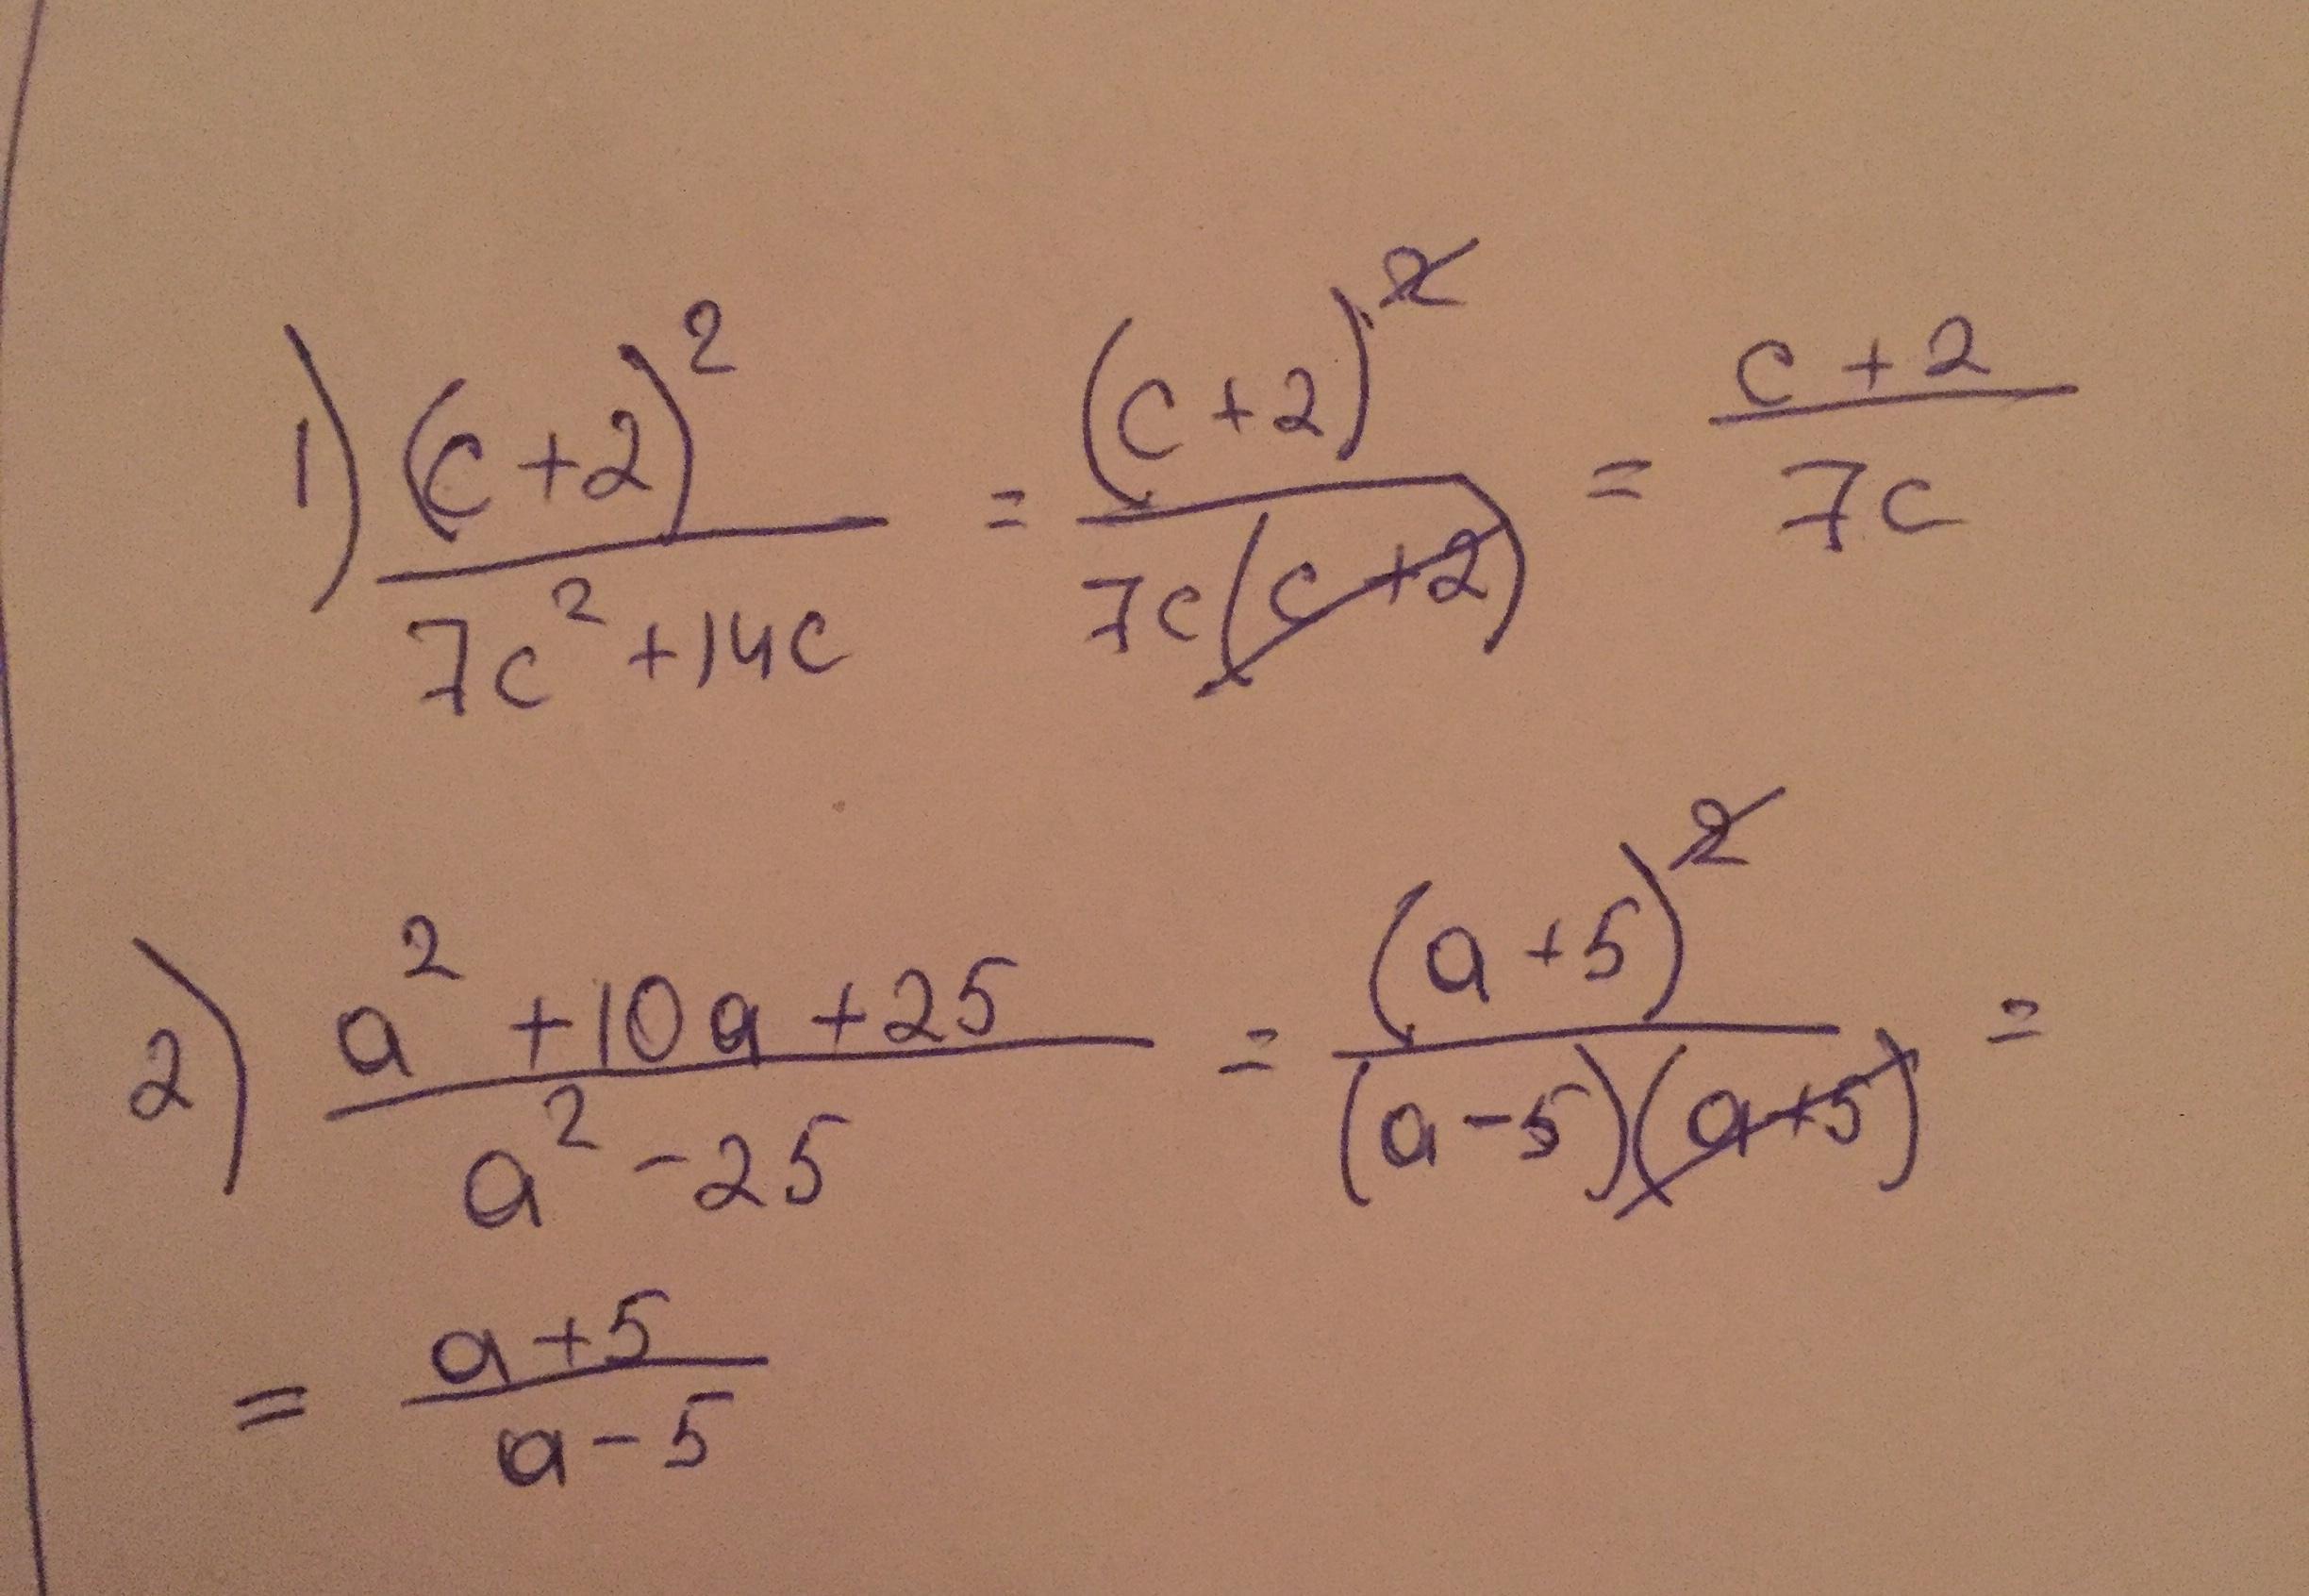 1) (c+2)² / (7c²+14c) = (c+2)² / (7c(c+2)) = (c+2) / (7c)
2) (a²+10a+25) / (a²-25) = (a+5)² / ((a-5)(a+5)) =
= (a+5) / (a-5)